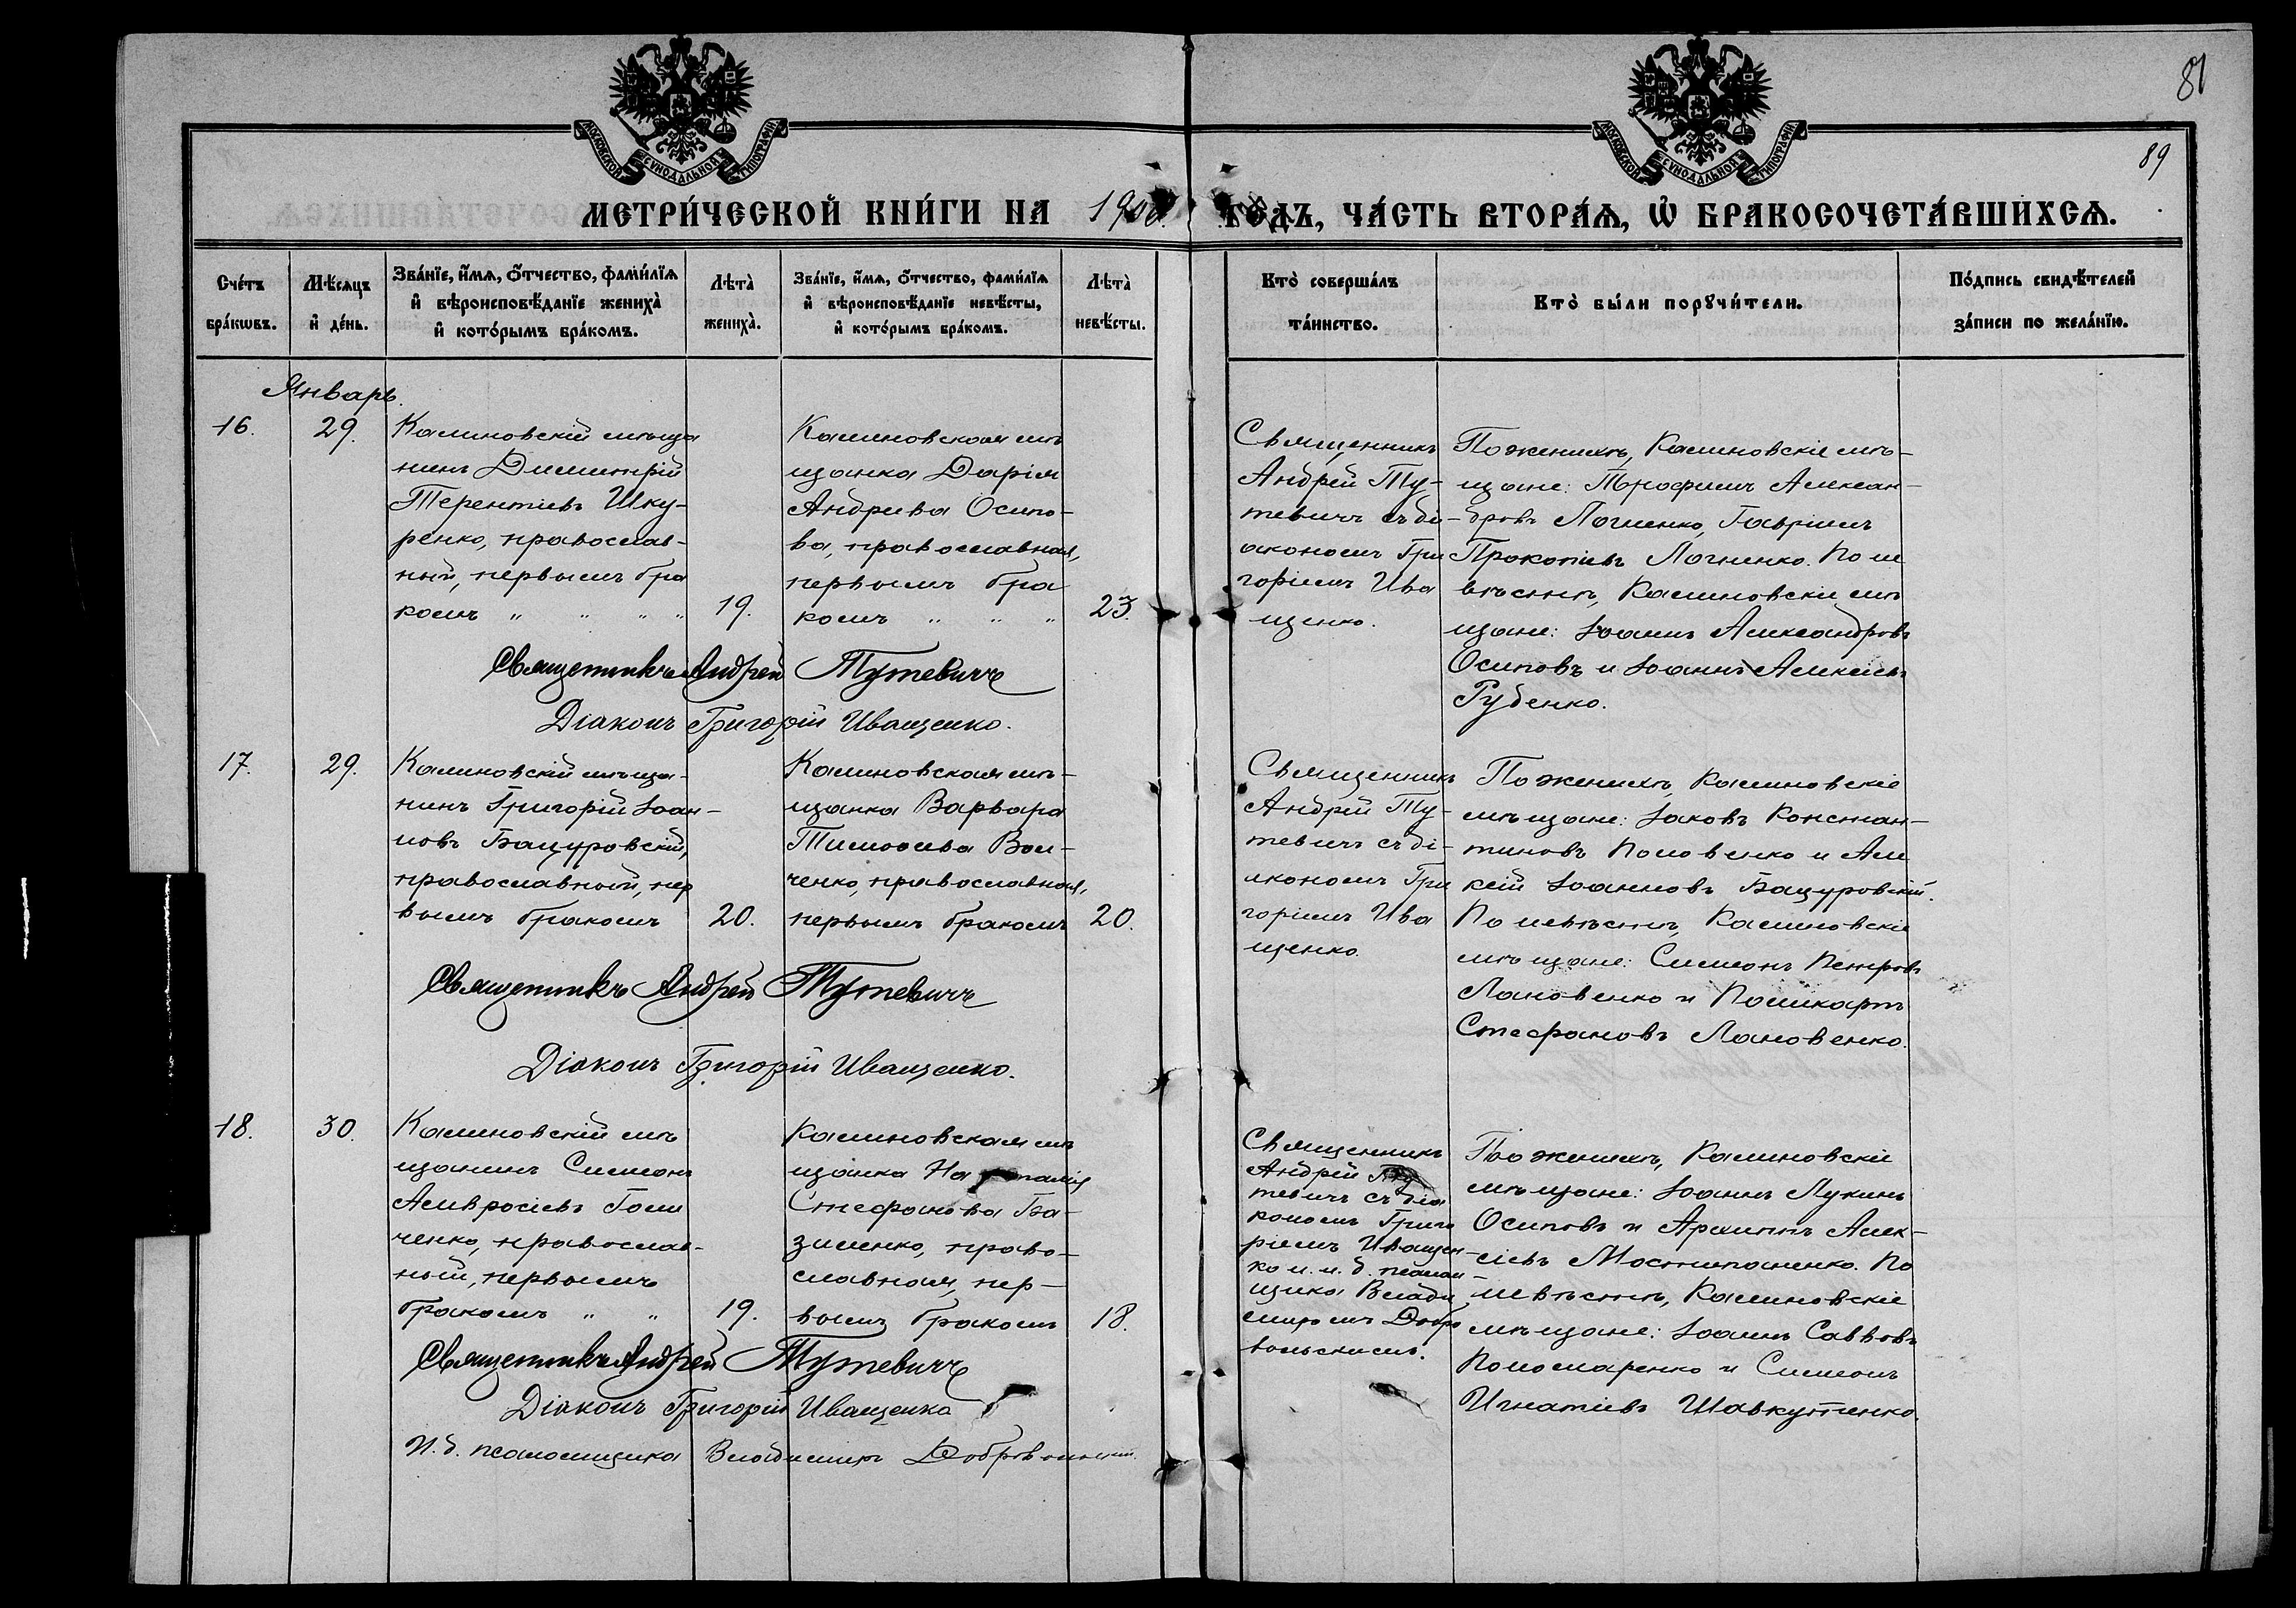 81
89
МОСКОВСКОЙ СѴНОДАЛЬНОЙ ТИПОГРАФІИ
МОСКОВСКОЙ СѴНОДАЛЬНОЙ ТИПОГРАФІИ
МЕТРИ́ЧЕСКОЙ КНИ́ГИ НА 190 ГОДЪ, ЧА́СТЬ ВТОРА́Ѧ, Ѽ БРАКОСОЧЕТА́ВШИХСѦ.
Сче́тъ
бра́кѡвъ.
Мѣ́сѧцъ
и҆ де́нь.
Зва́нїе, и҆́мѧ, ѻ҆́тчество, фамѝлїѧ
и҆ вѣроисповѣ́данїе жениха̀
и҆ кото́рымъ бра́комъ.
Лѣта̀
жениха̀.
Зва́нїе, и҆́мѧ, ѻ҆́тчество, фамѝлїѧ
и҆ вѣроисповѣ́данїе невѣ́сты,
и҆ кото́рымъ бра́комъ.
Лѣта̀
невѣ́сты.
Кто̀ соверша́лъ
та́инство.
Кто̀ бы́ли порꙋчи́тели.
По́дпись свидѣ́телей
за́писи по жела́нїю.
Январь.
16.
29.
Калиновскій мѣща
нинъ Димитрій
Терентіевъ Шку-
ренко, православ-
ный, первымъ бра
комъ " " " "
19.
Калиновская мѣ
щанка Дарія
Андреева Осипо-
ва, православная,
первымъ бра
комъ " " "
23.
Священникъ
Андрей Ту-
тевичъ съ ді-
акономъ Гри
горіемъ Ива
щенко.
По женихѣ, Калиновскіе мѣ-
щане: Трофимъ Алексан-
дровъ Логиенко, Гавріилъ
Прокопіевъ Логиенко. По не
вѣстѣ, Калиновскіе мѣ
щане: Іоаннъ Александровъ
Осиповъ и Іоаннъ Алексѣевъ
Рубенко.
Священникъ Андрей Тутевичъ
Діаконъ Григорій Иващенко.
17.
29.
Калиновскій мѣща-
нинъ Григорій Іоан-
новъ Бацуровскій,
православный, пер
вымъ бракомъ
20.
Калиновская мѣ-
щанка Варвара
Тимоѳеева Вол-
ченко, православная,
первымъ бракомъ
20.
Священникъ
Андрей Ту-
тевичъ съ ді-
акономъ Гри
горіемъ Ива
щенко.
По женихѣ, Калиновскіе
мѣщане: Іаковъ Констан-
тиновъ Половенко и Але
ксій Іоанновъ Бацуровскій.
По невѣстѣ, Калиновскіе
мѣщане: Симеонъ Петровъ
Лановенко и Поликарпъ
Стефановъ Лановенко.
Священникъ Андрей Тутевичъ
Діаконъ Григорій Иващенко.
18.
30.
Калиновскій мѣ
щанинъ Симеонъ
Амвросіевъ Голи
ченко, православ-
ный, первымъ
бракомъ " "
19.
Калиновская мѣ
щанка
Стефанова Ба-
зиленко, право-
славная, пер-
вымъ бракомъ
18.
Священникъ
Андрей Ту
тевичъ съ діа
кономъ Григо
ріемъ Иващен-
ко и и. д. псалом-
щика Влади
міромъ Добро
вольскимъ.
По женихѣ, Калиновскіе
мѣщане: Іоаннъ Лукинъ
Осиповъ и Архиппъ Алек-
сіевъ Мостипаненко. По
невѣстѣ, Калиновскіе
мѣщане: Іоаннъ Саввовъ
Пономаренко и Симеонъ
Игнатіевъ Шавкутенко.
Священникъ Андрей Тутевичъ
Діаконъ Григорій Иващенко
И. д. псаломщика Владиміръ Добровольскій.